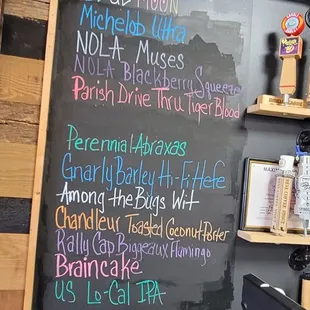 MOON
Michelob Ultra
NOLA Muses
NOLA Blackberry Squeeze
Parish Drive Thru Tiger Blood
Perennial Abraxas
Gnarly Barley Hi-Fi Hefe
Among the Bugs Wit
Chandleur Toasted Coconut Porter
Rally Cap Biggeaux Flamingo
Braincake
US Lo-Cal IPA